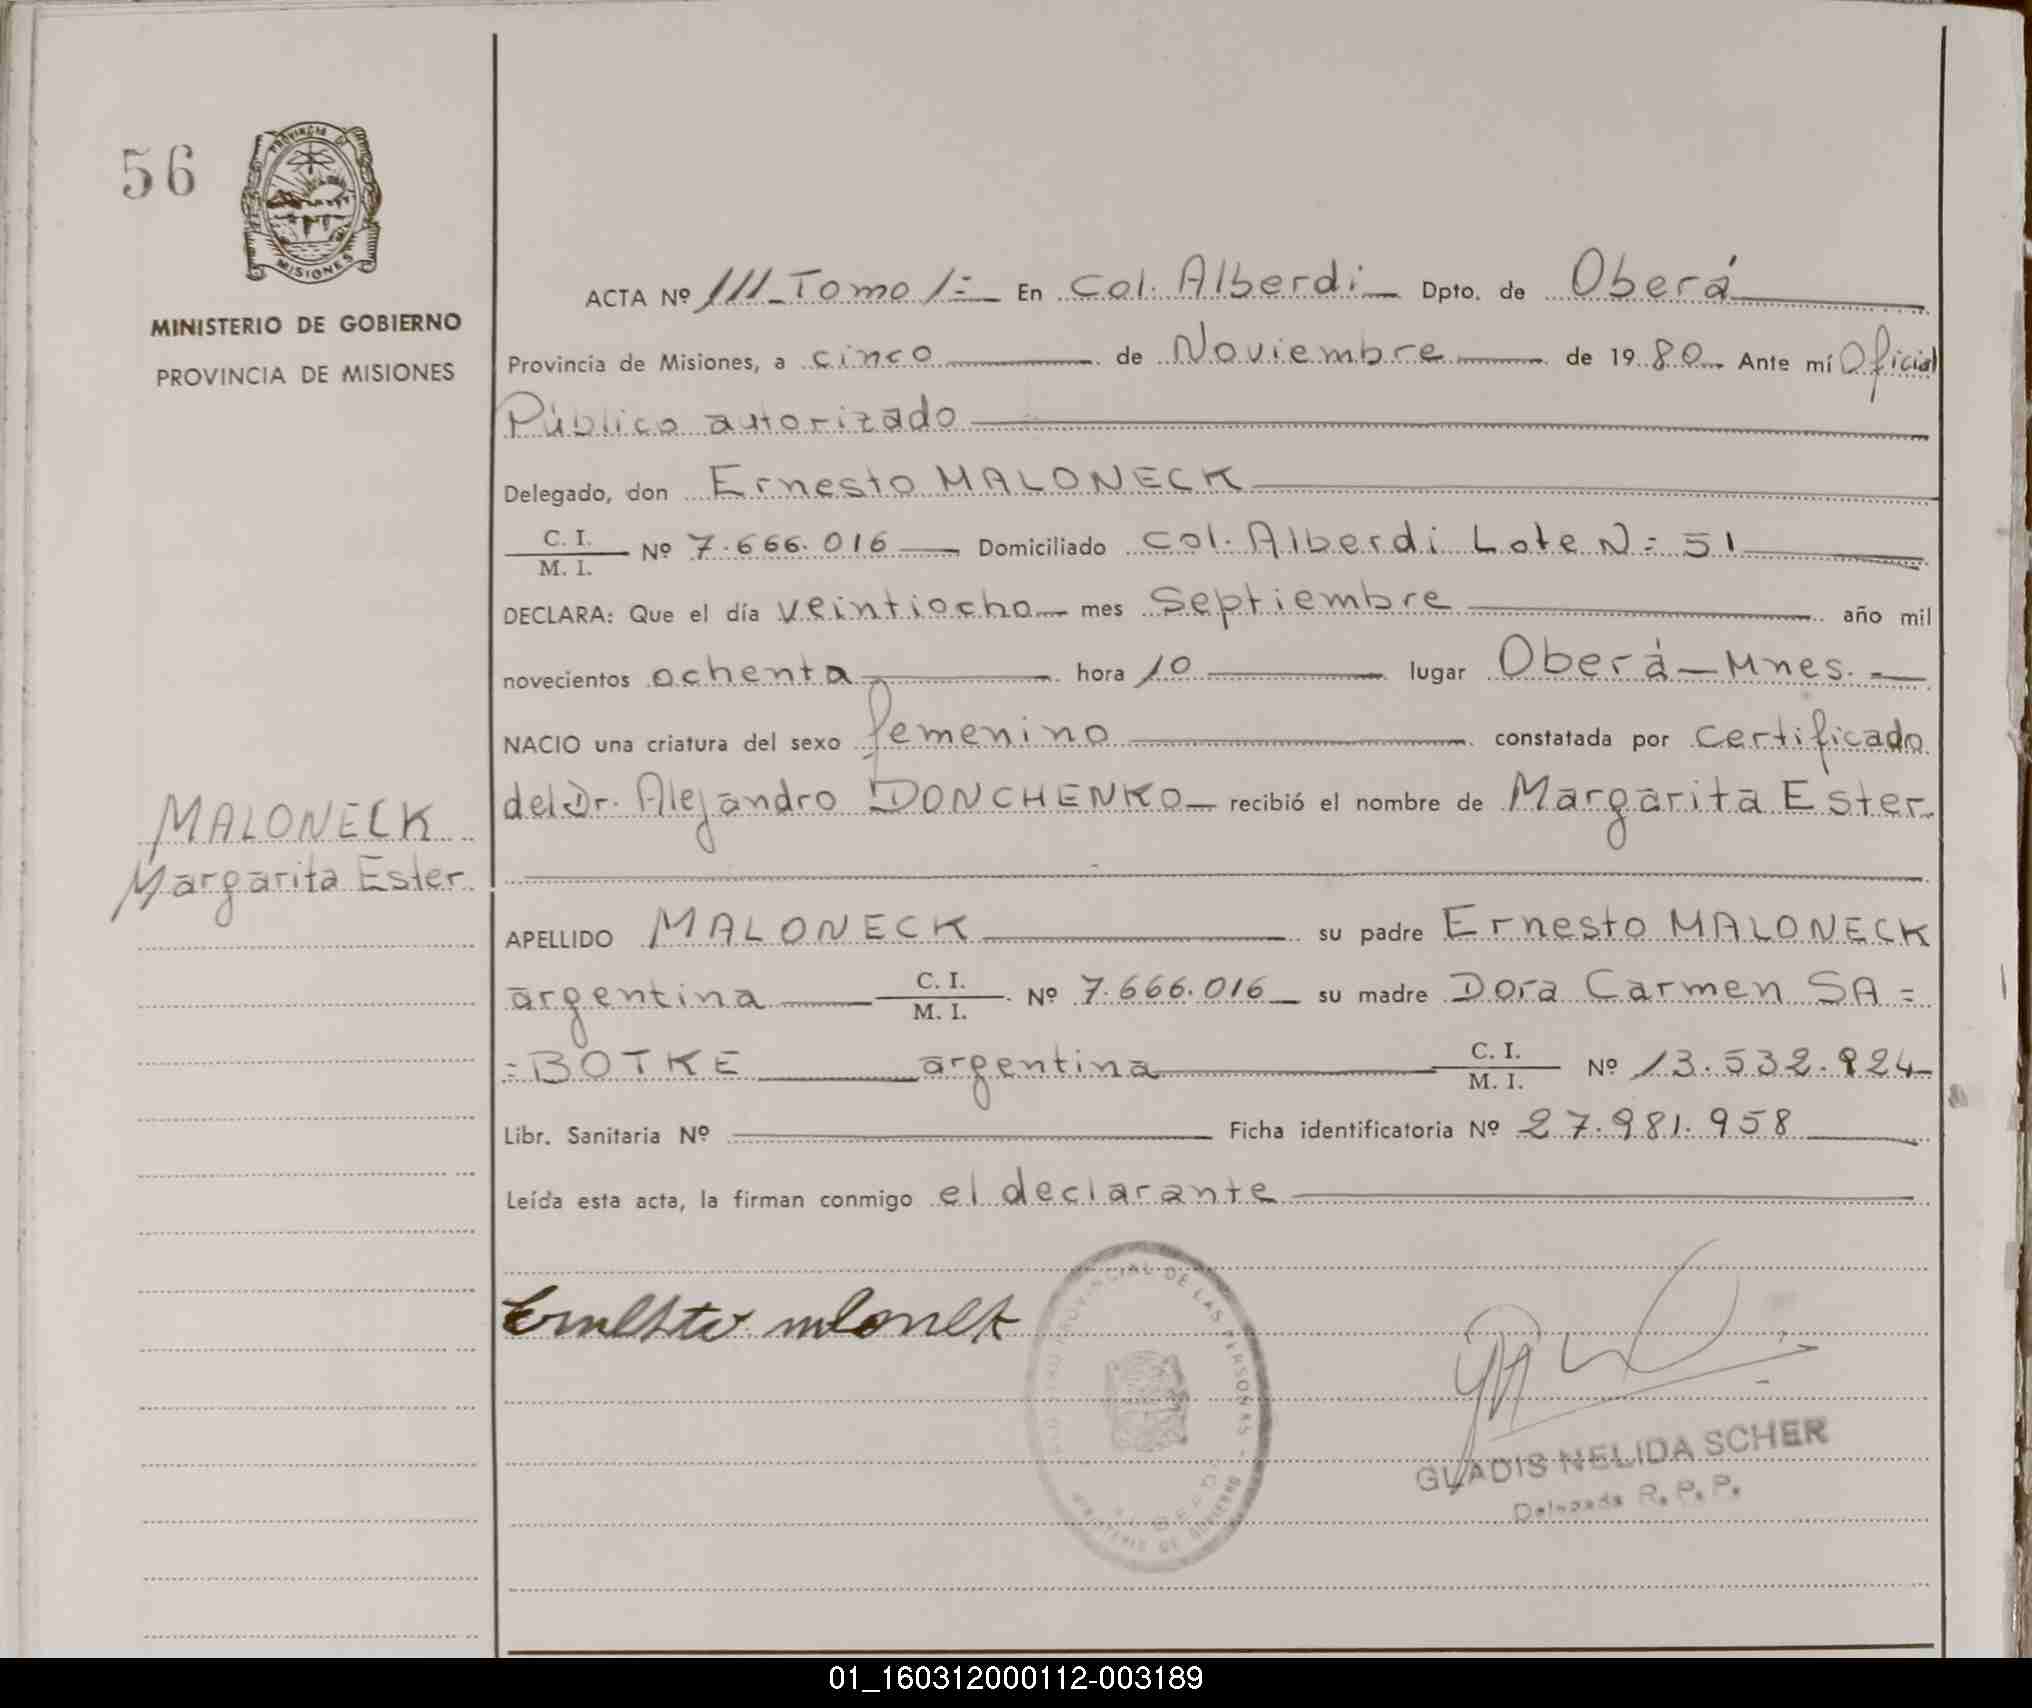 56
PROVINCIA DE
MISIONES
MINISTERIO DE GOBIERNO
PROVINCIA DE MISIONES
ACTA Nº 111 Tomo 1= En Col. Alberdi Dpto. de Oberá
Provincia de Misiones, a cinco de Noviembre de 1980 Ante mí Oficial
Público autorizado
Delegado, don Ernesto MALONECK
C. I.
M. I.
Nº 7.666.016 Domiciliado Col. Alberdi Lote N= 51
DECLARA: Que el día veintiocho mes Septiembre año mil
novecientos ochenta hora 10 lugar Oberá - Mnes.
NACIO una criatura del sexo femenino constatada por certificado
del Dr. Alejandro DONCHENKO recibió el nombre de Margarita Ester
MALONECK
Margarita Ester
APELLIDO MALONECK su padre Ernesto MALONECK
argentina C. I. M. I. Nº 7.666.016 su madre Dora Carmen SA=
=BOTKE argentina C. I. M. I. Nº 13.532.924
Libr. Sanitaria Nº Ficha identificatoria Nº 27.981.958
Leída esta acta, la firman conmigo el declarante
PROVINCIAL DE LAS PERSONAS
MINISTERIO DE GOBIERNO
GLADIS NELIDA SCHER
Delegada R. P. P.
01_160312000112-003189